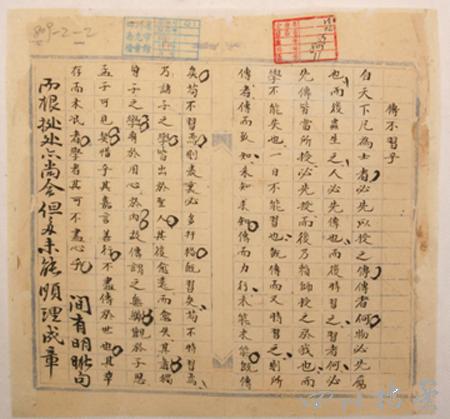 809-2-2
傳不習乎
自天下凡為士者必先以授之傳傳者何物必先
也而後蟲生之人必先傳也而後特習之習者何必
先傳皆當所授必先授而後乃稱師授之於我也而
學不能失也一日不能習也既傳而又特習之則所
傳者傳而致知未知求知傳而力行未能求能既傳
矣苟不習焉則表裏必多扞格既習矣苟不特習焉
乃諸子之學皆出於聖人其後愈遠而愈失其真獨
曾子之學專於用心於內故傳謂之無弊觀於子思
孟子可見矣惜乎其嘉言善行不盡傳於世也其幸
存而未泯者學者其可不盡心乎
間有明晰句
而根據處亦尚合但多未能順理成章